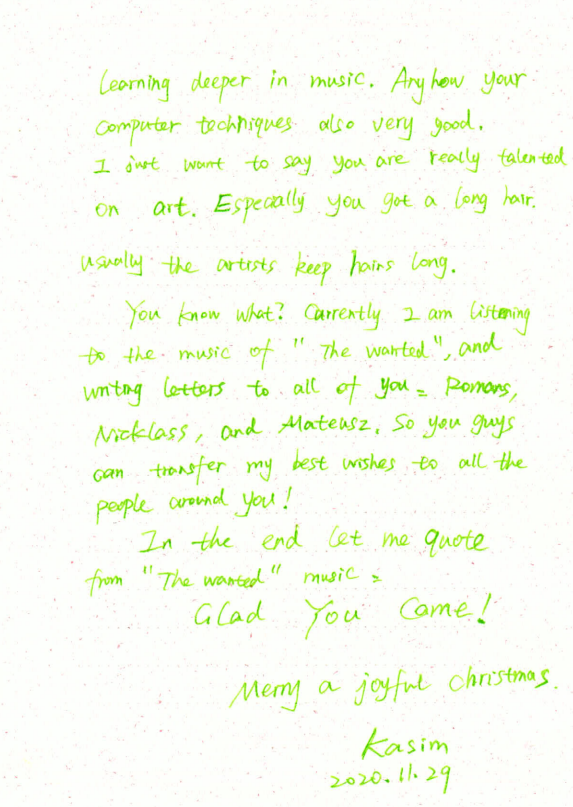 learning deeper in music. Anyhow your
computer techniques also very good.
I just want to say you are really talented
on art. Especially you got a long hair.
usually the artists keep hairs long.
You know what? Currently I am listening
to the music of "The wanted", and
writing letters to all of you = Romans,
Nicklass, and Mateusz. So you guys
can transfer my best wishes to all the
people around you!
In the end let me quote
from "The wanted" music =
Glad You Came!
Merry a joyful christmas.
Kasim
2020.11.29